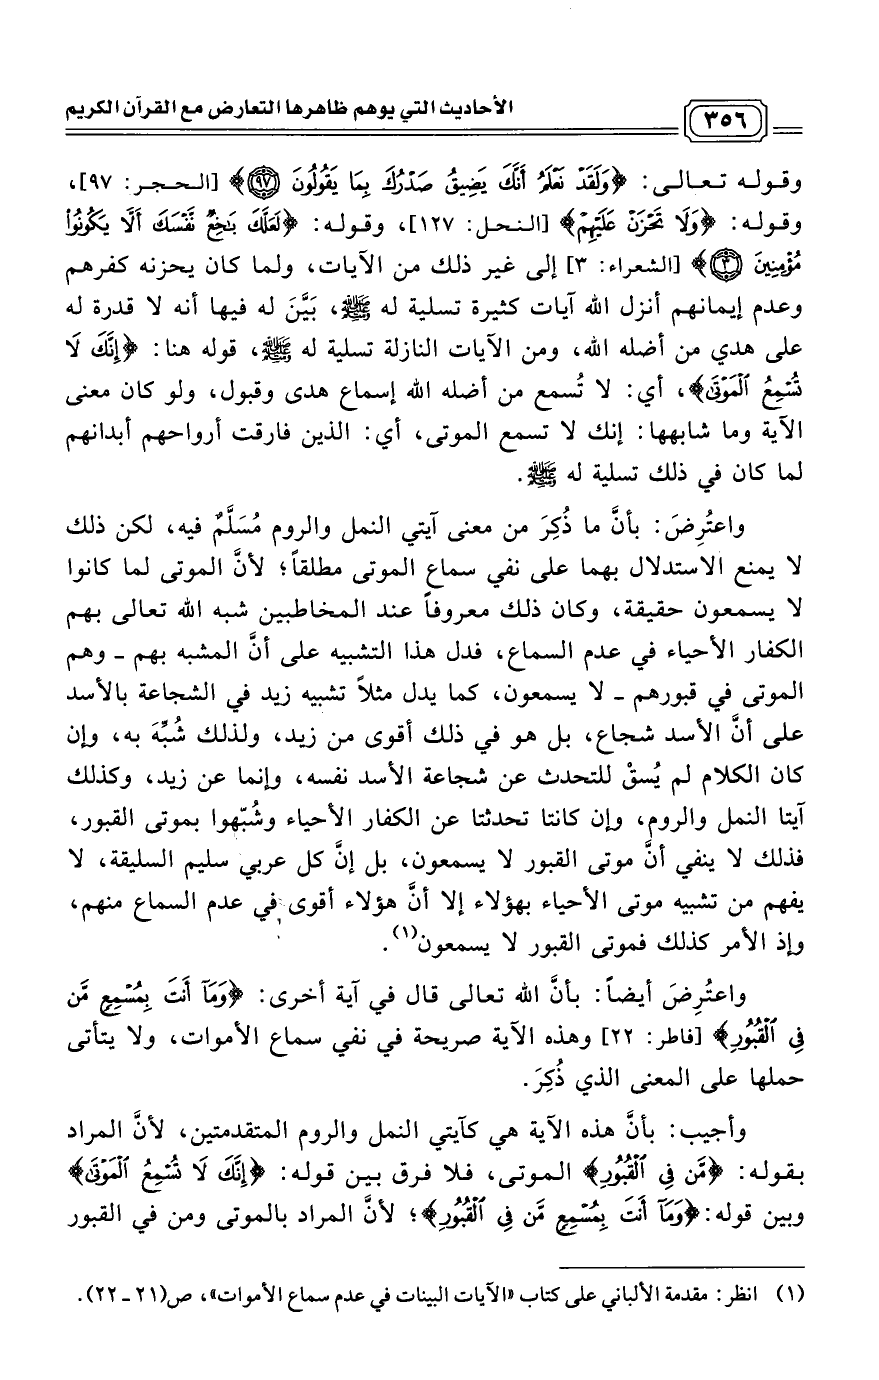 ٣٥٦
الأحاديث التي يوهم ظاهرها التعارض مع القرآن الكريم
وقوله تعالى: ﴿وَلَقَدْ نَعْلَمُ أَنَّكَ يَضِيقُ صَدْرُكَ بِمَا يَقُولُونَ ﴿٩٧﴾﴾ [الحجر: ٩٧]،
وقوله: ﴿وَلَا تَحْزَنْ عَلَيْهِمْ﴾ [النحل: ١٢٧]، وقوله: ﴿لَعَلَّكَ بَاخِعٌ نَّفْسَكَ أَلَّا يَكُونُوا۟
مُؤْمِنِينَ ﴿٣﴾﴾ [الشعراء: ٣] إلى غير ذلك من الآيات، ولما كان يحزنه كفرهم
وعدم إيمانهم أنزل الله آيات كثيرة تسلية له ﷺ، بَيَّنَ له فيها أنه لا قدرة له
على هدي من أضله الله، ومن الآيات النازلة تسلية له ﷺ، قوله هنا: ﴿إِنَّكَ لَا
تُسْمِعُ ٱلْمَوْتَىٰ﴾، أي: لا تُسمع من أضله الله إسماع هدى وقبول، ولو كان معنى
الآية وما شابهها: إنك لا تسمع الموتى، أي: الذين فارقت أرواحهم أبدانهم
لما كان في ذلك تسلية له ﷺ.
واعتُرِضَ: بأنَّ ما ذُكِرَ من معنى آيتي النمل والروم مُسَلَّمٌ فيه، لكن ذلك
لا يمنع الاستدلال بهما على نفي سماع الموتى مطلقاً؛ لأنَّ الموتى لما كانوا
لا يسمعون حقيقة، وكان ذلك معروفاً عند المخاطبين شبه الله تعالى بهم
الكفار الأحياء في عدم السماع، فدل هذا التشبيه على أنَّ المشبه بهم ـ وهم
الموتى في قبورهم ـ لا يسمعون، كما يدل مثلاً تشبيه زيد في الشجاعة بالأسد
على أنَّ الأسد شجاع، بل هو في ذلك أقوى من زيد، ولذلك شُبِّهَ به، وإن
كان الكلام لم يُسقْ للتحدث عن شجاعة الأسد نفسه، وإنما عن زيد، وكذلك
آيتا النمل والروم، وإن كانتا تحدثتا عن الكفار الأحياء وشُبّهوا بموتى القبور،
فذلك لا ينفي أنَّ موتى القبور لا يسمعون، بل إنَّ كل عربي سليم السليقة، لا
يفهم من تشبيه موتى الأحياء بهؤلاء إلا أنَّ هؤلاء أقوى في عدم السماع منهم،
وإذ الأمر كذلك فموتى القبور لا يسمعون(١).
واعتُرِضَ أيضاً: بأنَّ الله تعالى قال في آية أخرى: ﴿وَمَآ أَنتَ بِمُسْمِعٍ مَّن
فِى ٱلْقُبُورِ﴾ [فاطر: ٢٢] وهذه الآية صريحة في نفي سماع الأموات، ولا يتأتى
حملها على المعنى الذي ذُكِرَ.
وأجيب: بأنَّ هذه الآية هي كآيتي النمل والروم المتقدمتين، لأنَّ المراد
بقوله: ﴿مَّن فِى ٱلْقُبُورِ﴾ الموتى، فلا فرق بين قوله: ﴿إِنَّكَ لَا تُسْمِعُ ٱلْمَوْتَىٰ﴾
وبين قوله: ﴿وَمَآ أَنتَ بِمُسْمِعٍ مَّن فِى ٱلْقُبُورِ﴾؛ لأنَّ المراد بالموتى ومن في القبور
(١) انظر: مقدمة الألباني على كتاب «الآيات البينات في عدم سماع الأموات»، ص(٢١ ـ ٢٢).